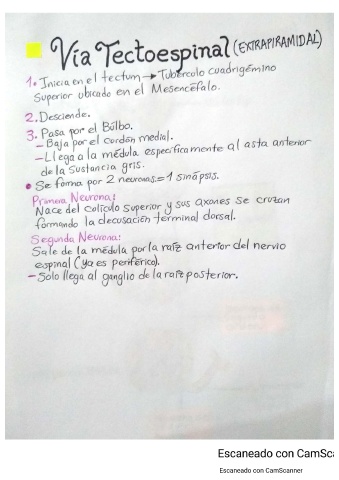 Vía Tectoespinal (EXTRAPIRAMIDAL)
1. Inicia en el tectum → Tubérculo cuadrigémino
Superior ubicado en el Mesencéfalo.
2. Desciende.
3. Pasa por el Bulbo.
- Baja por el cordón medial.
- Llega a la médula específicamente al asta anterior
de la Sustancia gris.
• Se forma por 2 neuronas = 1 sinápsis.
Primera Neurona:
Nace del colículo superior y sus axones se cruzan
formando la decusación terminal dorsal.
Segunda Neurona:
Sale de la médula por la raíz anterior del nervio
espinal (ya es periférico).
- Solo llega al ganglio de la raíz posterior.
Escaneado con CamSca
Escaneado con CamScanner